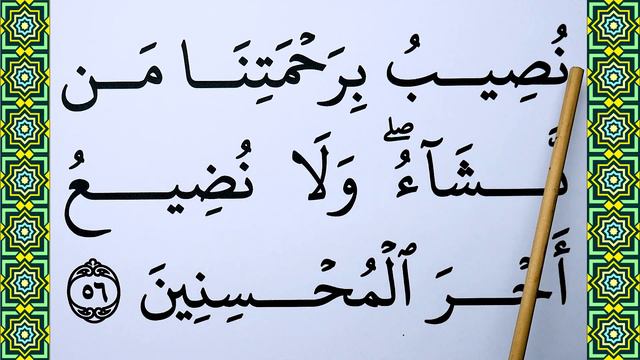 نُصِيبُ بِرَحْمَتِنَا مَن
نَّشَآءُ ۖ وَلَا نُضِيعُ
أَجْرَ ٱلْمُحْسِنِينَ ٥٦